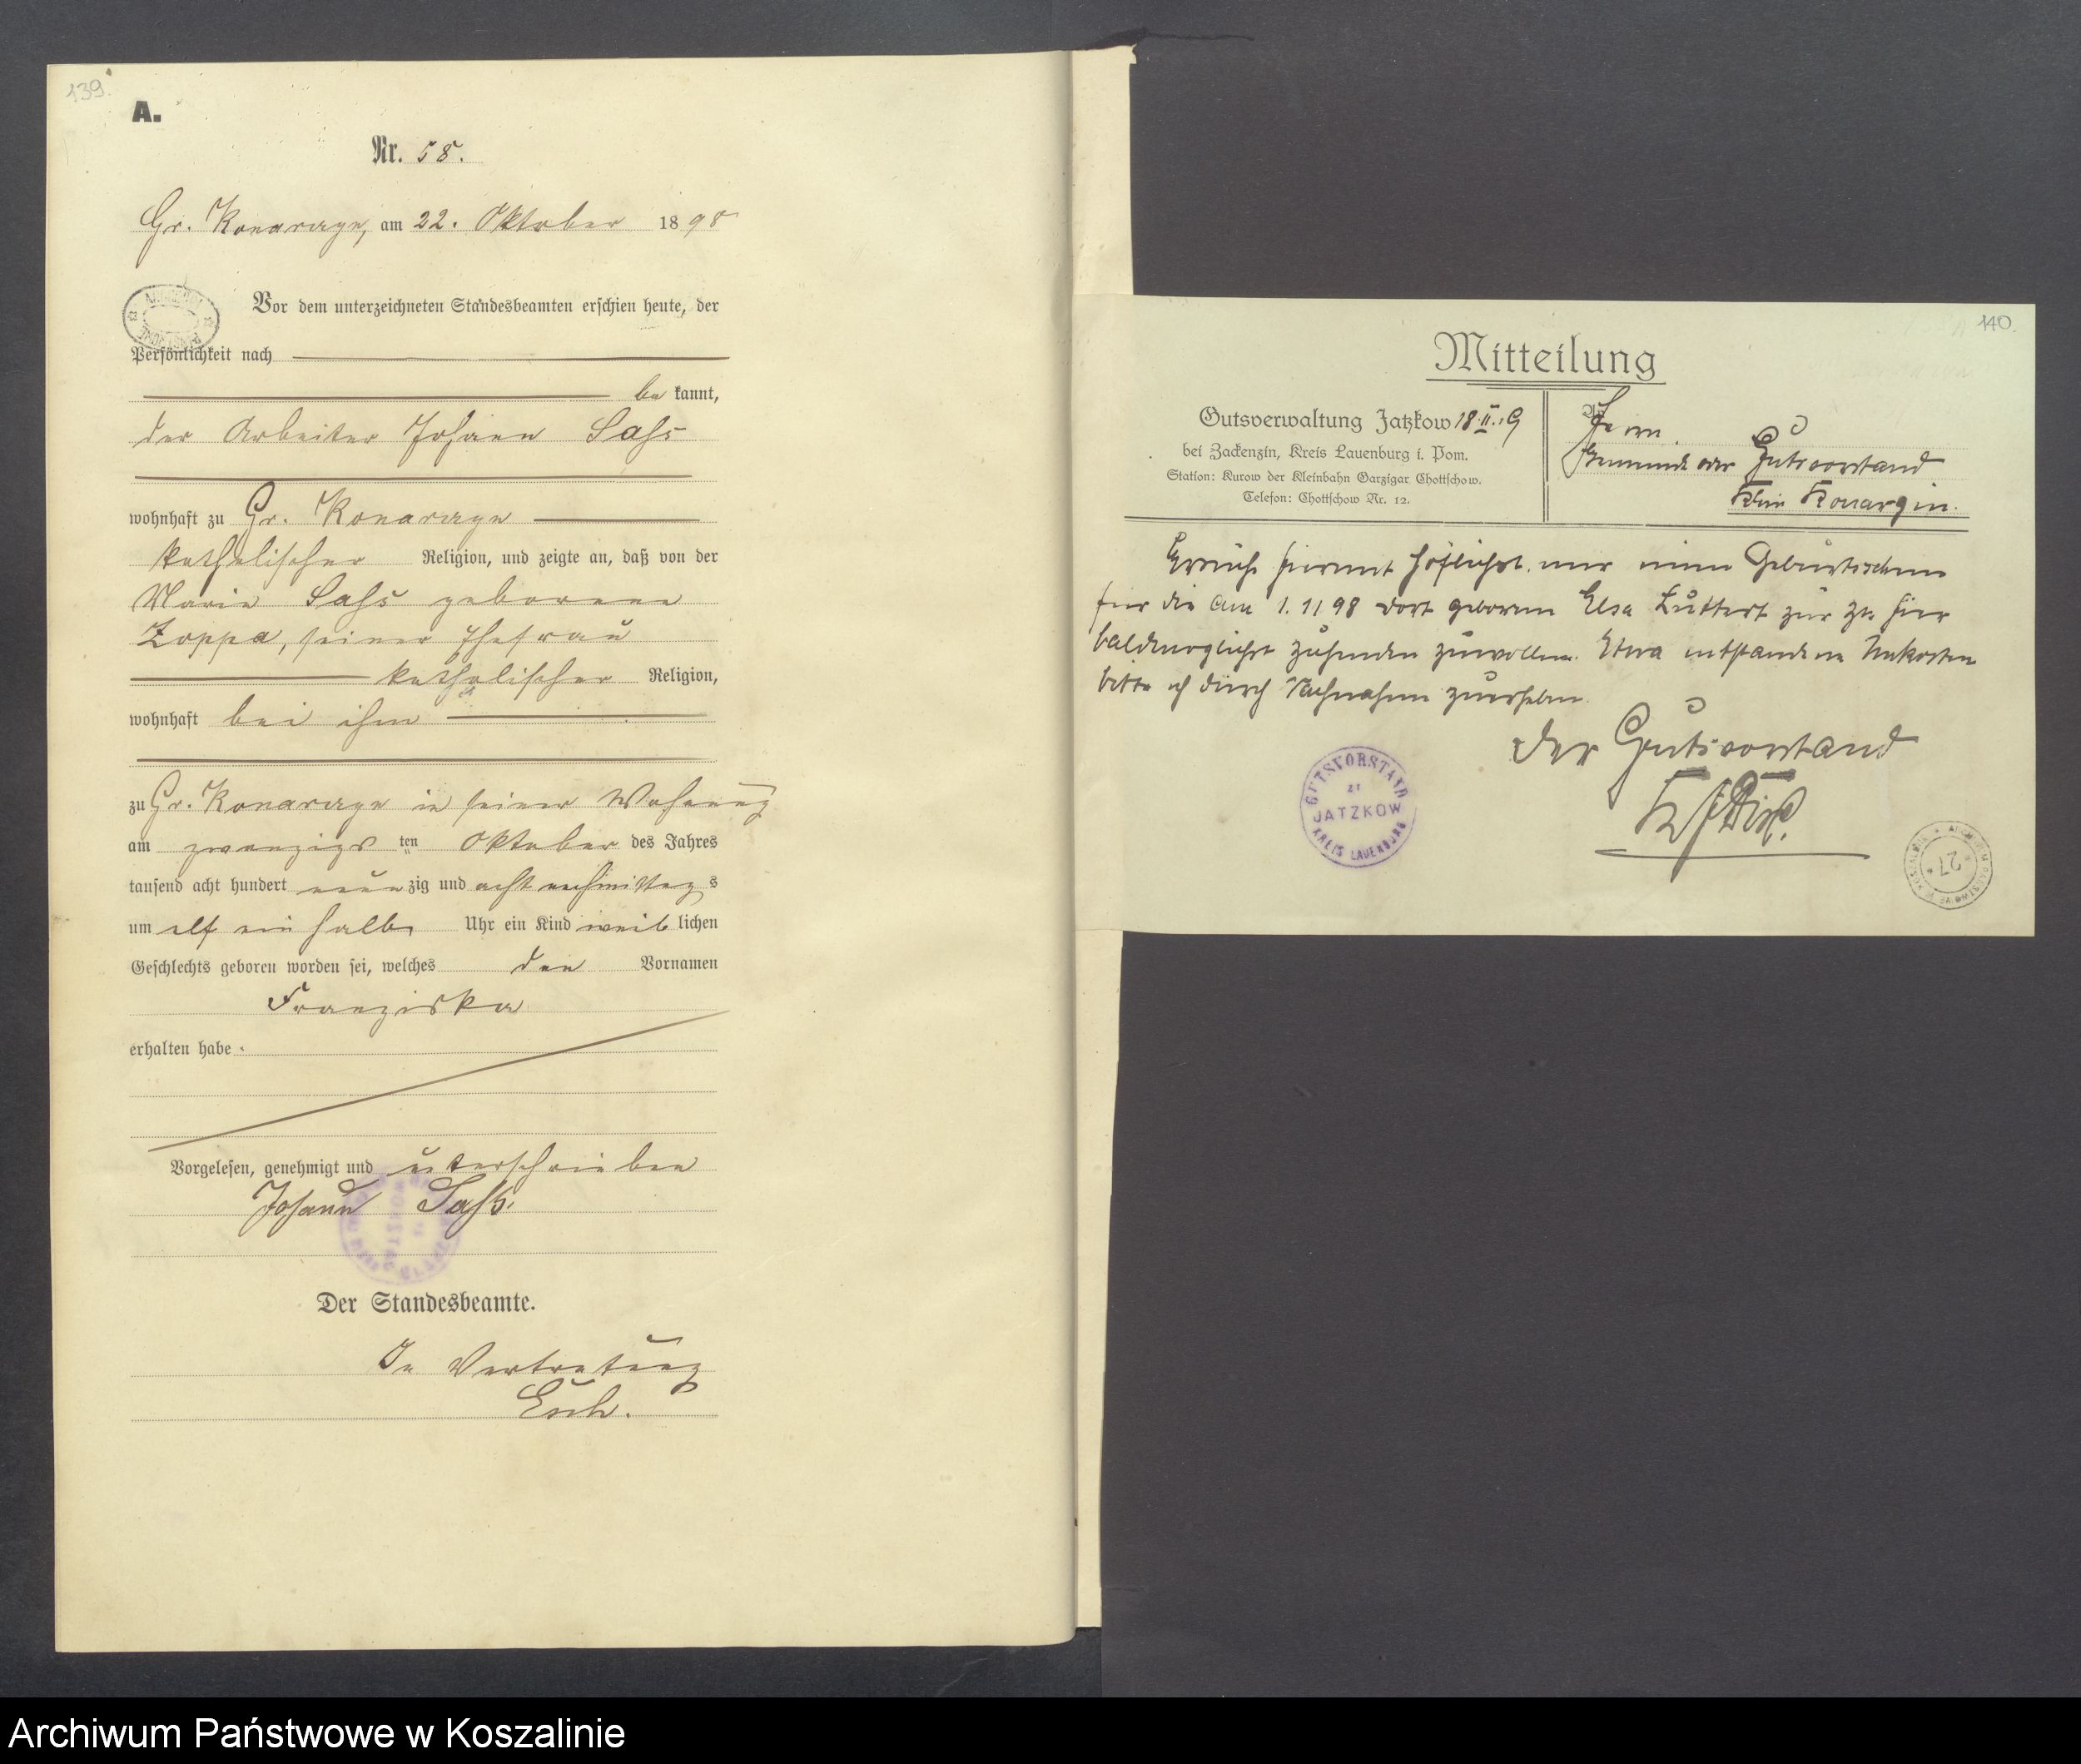 139.
A.
Nr. 58.
Gr. Konarzyn, am 22. Oktober 1898
Vor dem unterzeichneten Standesbeamten erschien heute, der
Persönlichkeit nach
be kannt,
der Arbeiter Johann Saß
wohnhaft zu Gr. Konarzyn
katholischer Religion, und zeigte an, daß von der
Marie Saß geborene
Zoppa, seiner Ehefrau
katholischer Religion,
wohnhaft bei ihm
zu Gr. Konarzyn in seiner Wohnung
am zwanzigs ten Oktober des Jahres
tausend acht hundert neun zig und acht nachmittag s
um elf ein halb Uhr ein Kind weib lichen
Geschlechts geboren worden sei, welches den Vornamen
Franziska
erhalten habe.
Vorgelesen, genehmigt und unterschrieben
Johann Saß.
Der Standesbeamte.
In Vertretung
140.
Mitteilung
Gutsverwaltung Jatzkow 18.II.19
bei Zackenzin, Kreis Lauenburg i. Pom.
Station: Kurow der Kleinbahn Garzigar Chottschow.
Telefon: Chottschow Nr. 12.
An
Gemeinde oder Gutsvorstand
Klein Konarzin.
Ersuche hiermit höflichst mir einen Geburtsschein
für die am 1.11 98 dort geborene Else Lüttert zur zu hier
baldmöglichst zusenden zuwollen. Etwa entstandene Unkosten
bitte ich durch Nachnahme zuerheben.
Der Gutsvorstand
GUTSVORSTAND
ZU
JATZKOW
KREIS LAUENBURG
27
Archiwum Państwowe w Koszalinie